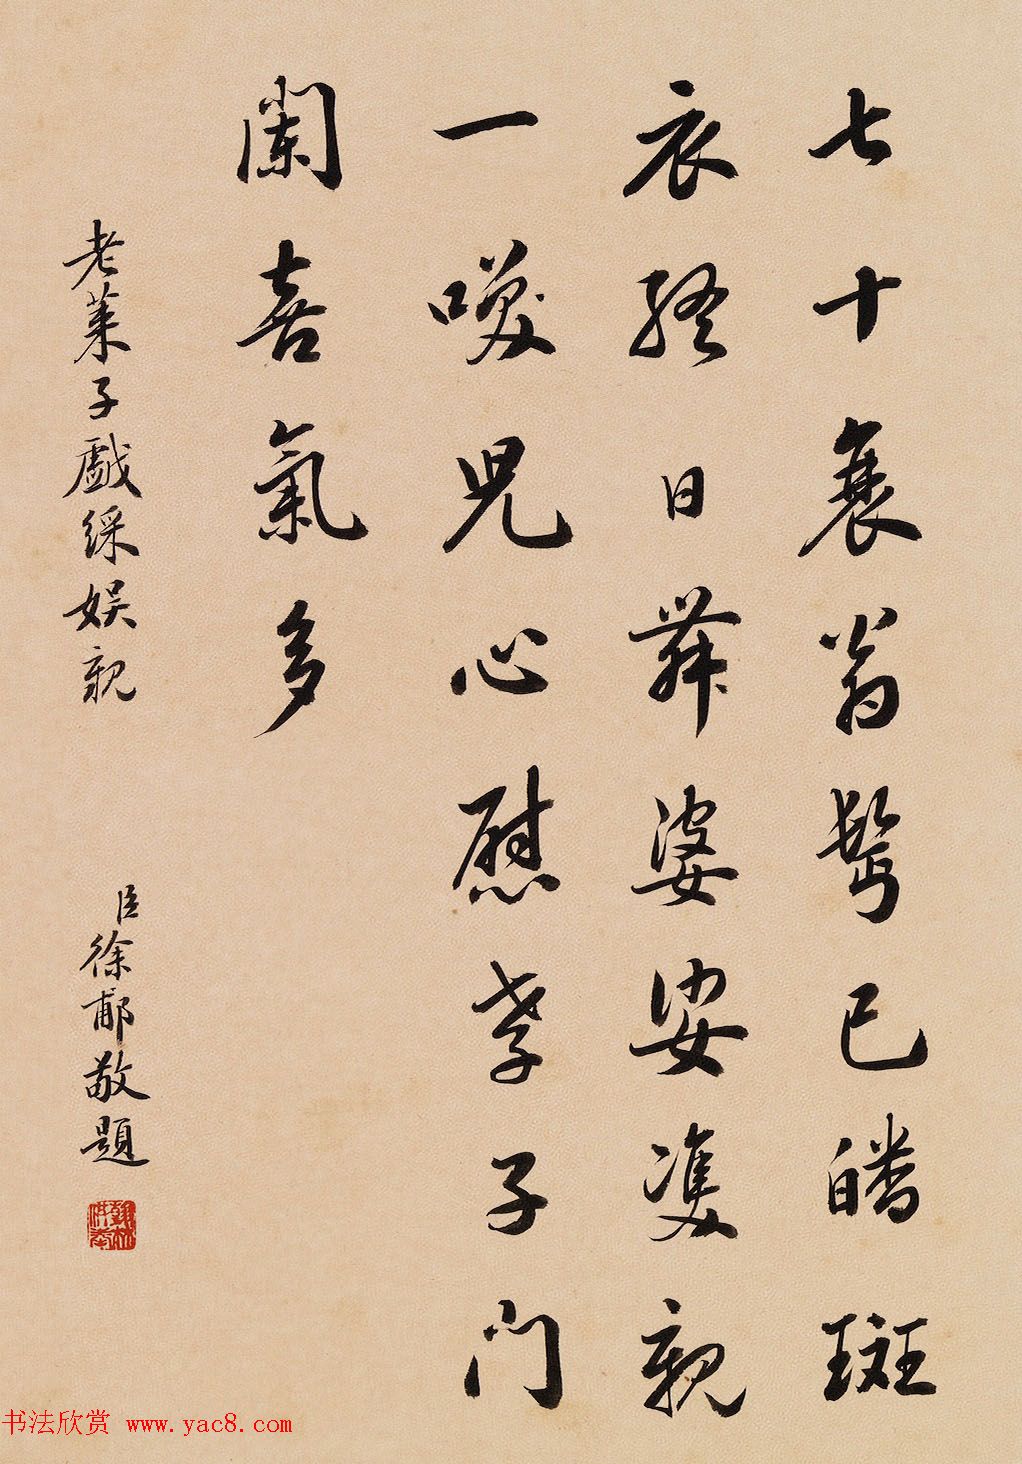 七十衰翁鬢已皤斑
衣終日舞婆娑雙親
一喚兒心慰孝子門
闌喜氣多
老萊子戲綵娛親
臣徐郙敬題
书法欣赏 www.yac8.com